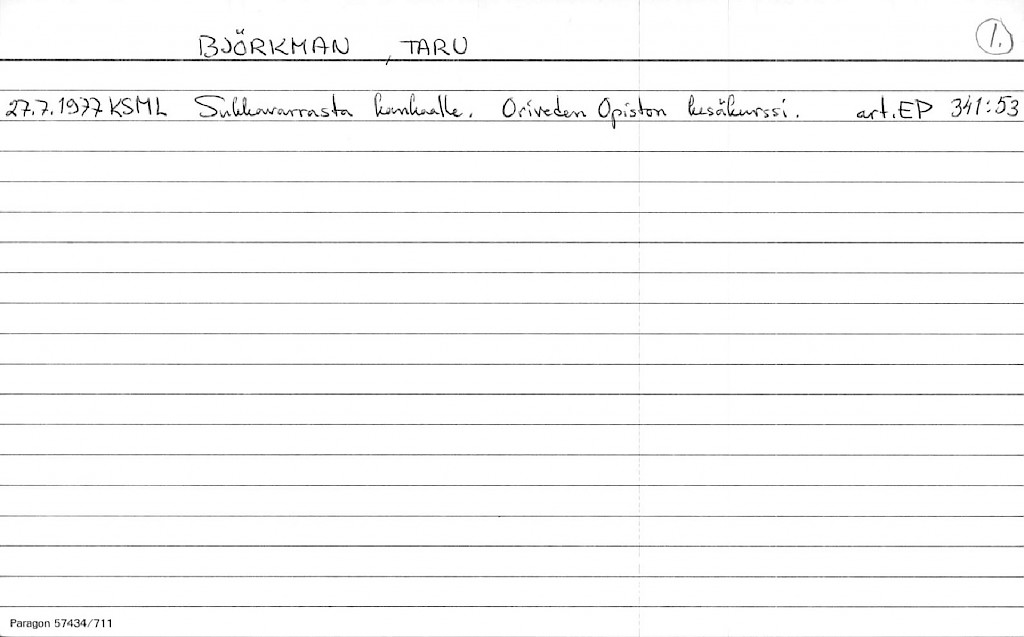 BJÖRKMAN, TARU 1.
27.7.1977 KSML Sukkavarrasta kankaalle. Oriveden Opiston kesäkurssi. art. EP 341:53
Paragon 57434/711